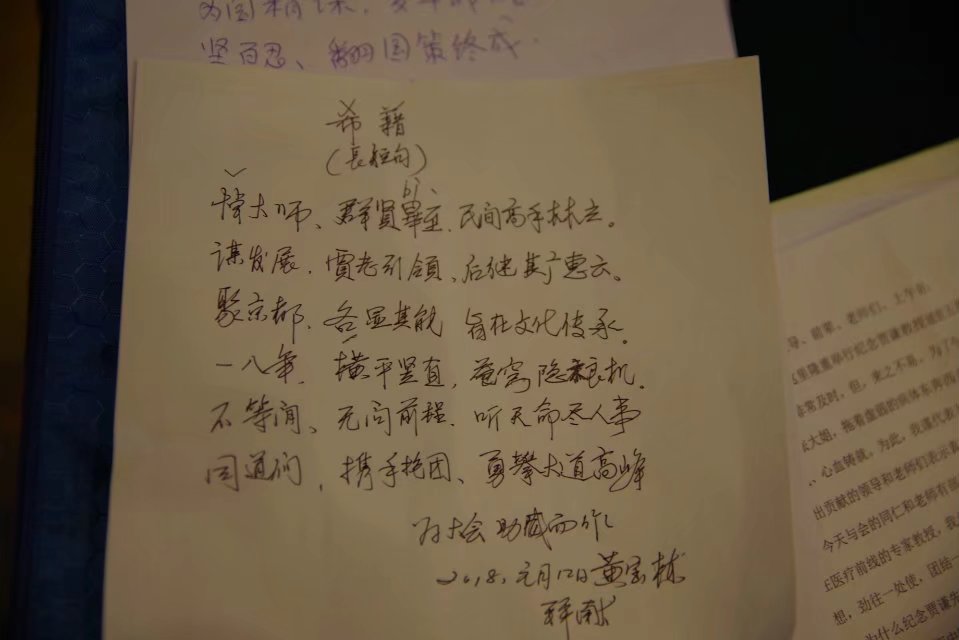 为国
坚百忍、 国策终成
希 籍
(長短句)
bì
大师、群贤畢至、民间高手林立。
谋发展、賈老引领、后继其广惠云。
聚京都、各显其能 旨在文化传承。
一八年、横平竖直，苍穹隐良机。
不等闲、无问前程、听天命尽人事
同道们、携手抱团、勇攀大道高峰
为大会助威而作
2018.元月12日黄宝林
拜献
导、前辈、老师们，上午好：
里隆重举行纪念贾谦教授诞辰
常及时，但，来之不易，为了
大姐，拖着虚弱的病体东奔西
心血铸就，为此，我谨代表
出贡献的领导和老师们表示真
今天与会的同仁和老师有
医疗前线的专家教授，我
想，劲往一处使，团结一
为什么纪念贾谦先